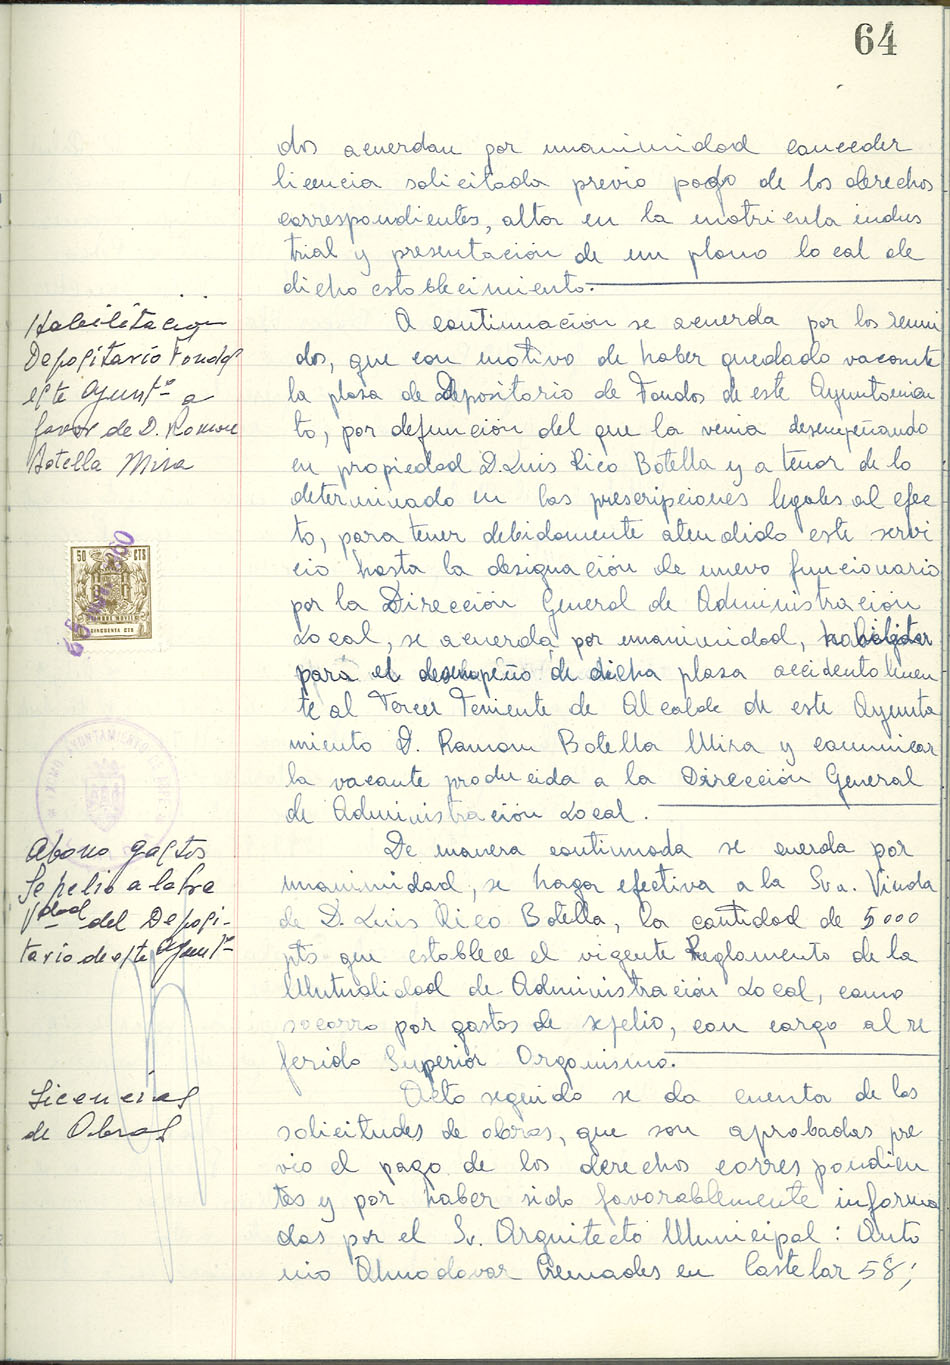 64
dos acuerdan por unanimidad conceder
licencia solicitada previo pago de los derechos
correspondientes, alta en la matricula indus
trial y presentación de un plano local de
dicho establecimiento.
Habilitación
Depositario Fondos
este Ayuntº a
favor de D. Ramon
Botella Mira
A continuación se acuerda por los reuni
dos, que con motivo de haber quedado vacante
la plaza de Depositario de Fondos de este Ayuntamien
to, por defunción del que la venia desempeñando
en propiedad D. Luis Rico Botella y a tenor de lo
determinado en las prescripciones legales al efec
to, para tener debidamente atendido este servi
cio hasta la designación de nuevo funcionario
por la Dirección General de Administración
Local, se acuerda por unanimidad, habilitar
para el desempeño de dicha plaza accidentalmen
te al Tercer Teniente de Alcalde de este Ayunta
miento D. Ramon Botella Mira y comunicar
la vacante producida a la Dirección General
de Administración Local.
50 CTS
TIMBRE MOVIL
CINCUENTA CTS
AYUNTAMIENTO
Abono gastos
Sepelio a la Sra
Vdad del Deposi-
tario de este Ayuntº
De manera continuada se acuerda por
unanimidad, se haga efectiva a la Sra. Viuda
de D. Luis Rico Botella, la cantidad de 5000
pts que establece el vigente Reglamento de la
Mutualidad de Administración Local, como
socorro por gastos de sepelio, con cargo al re
ferido Superior Organismo.
Licencias
de Obras
Acto seguido se da cuenta de las
solicitudes de obras, que son aprobadas pre
vio el pago de los derechos correspondien
tes y por haber sido favorablemente informa
das por el Sr. Arquitecto Municipal: Anto
nio Almodovar Cremades en Castelar 58;